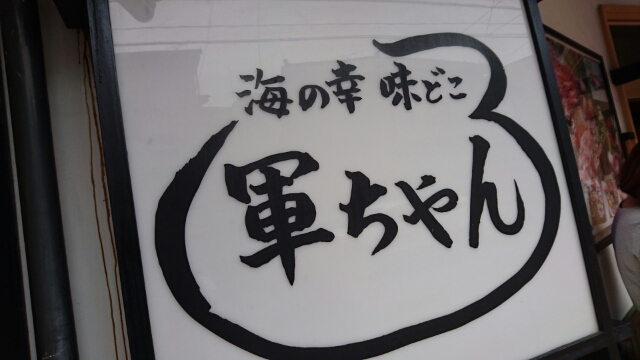 海の幸 味どこ
軍ちゃん